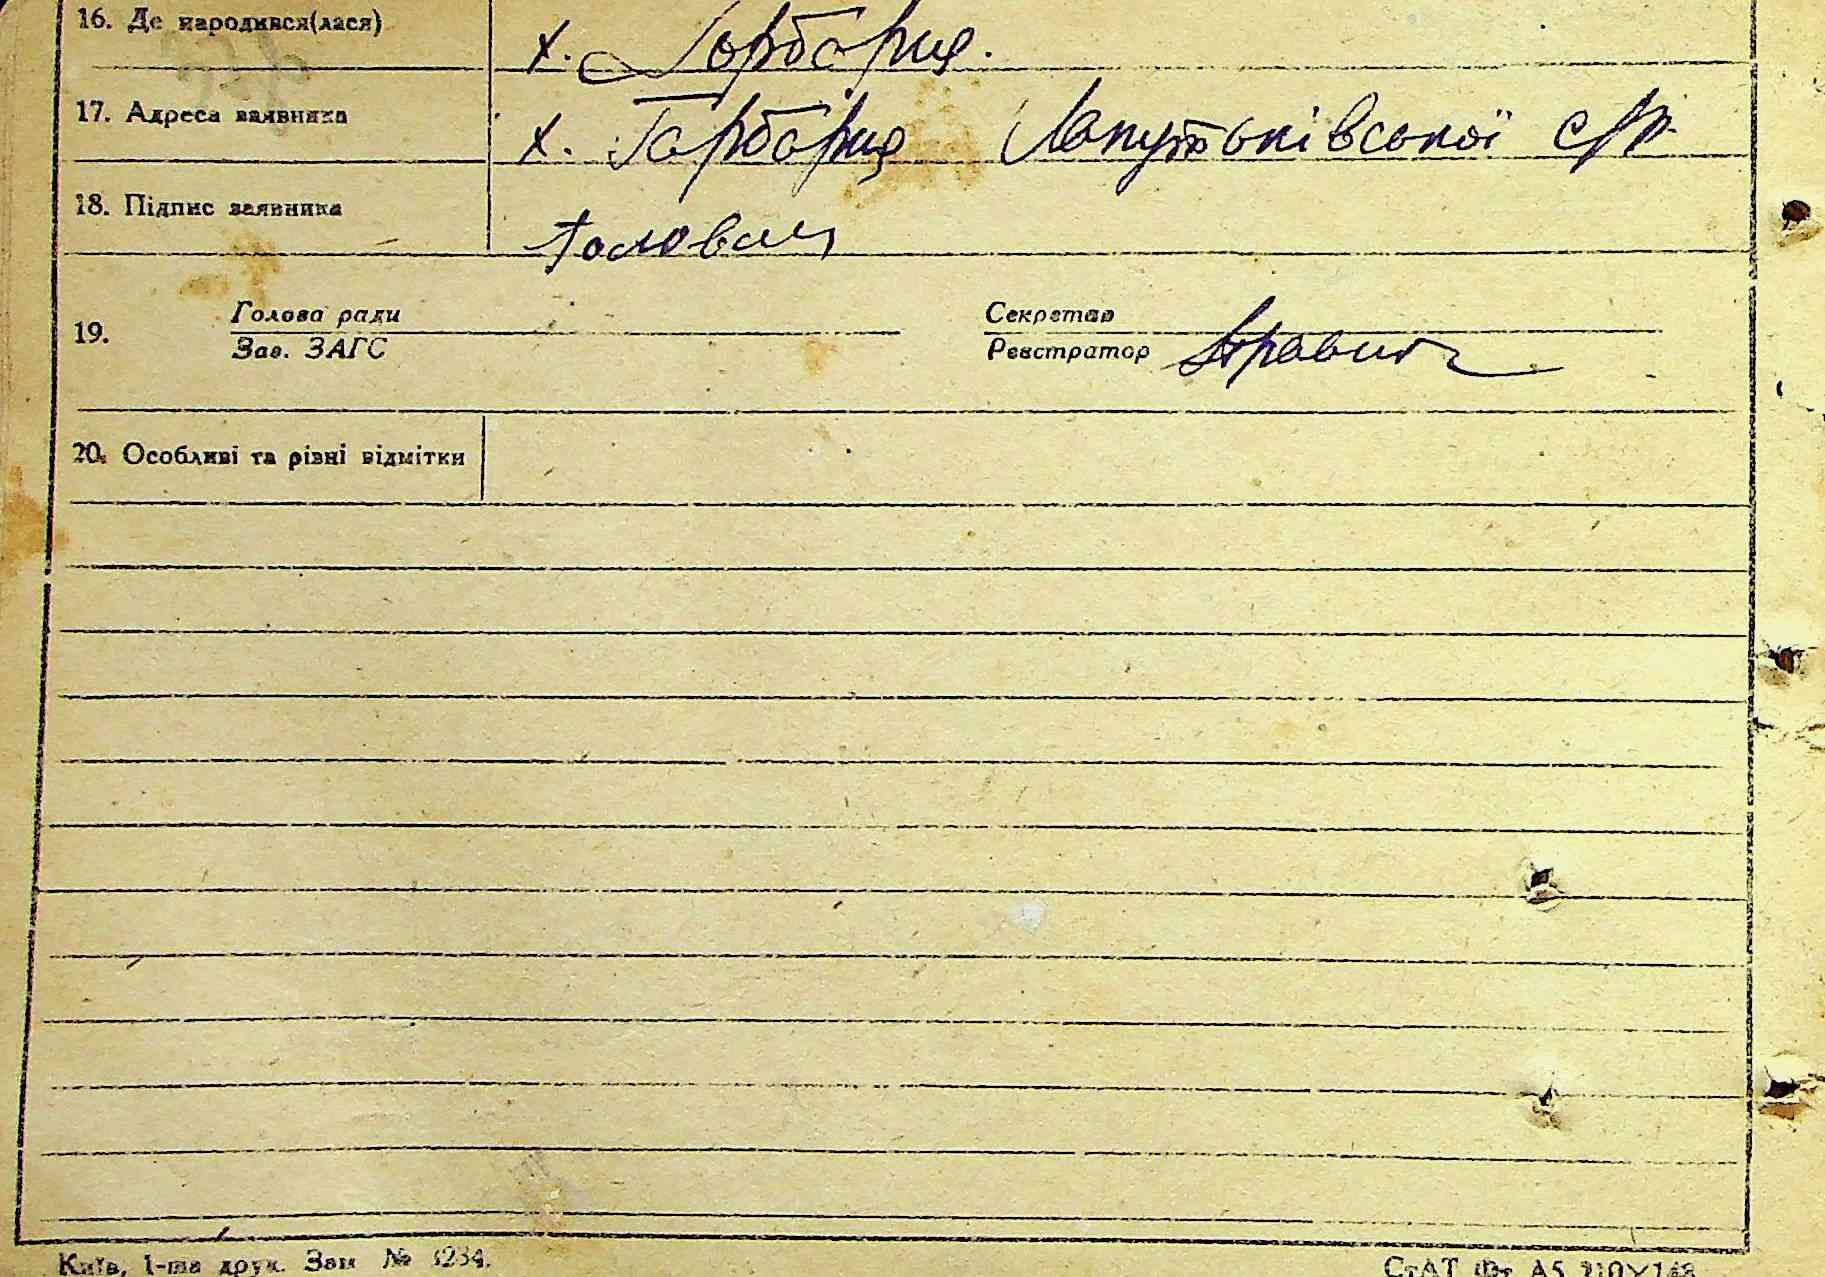 16. Де народився(лася) х. Горбарця.
17. Адреса заявника х. Горбарця Лопутьківської с/р.
18. Підпис заявника Головац
19. Голова ради Секретар
Зав. ЗАГС Реєстратор
20. Особливі та різні відмітки
Київ, 1-ша друк. Зам №
СтАТ Фт А5 210×148